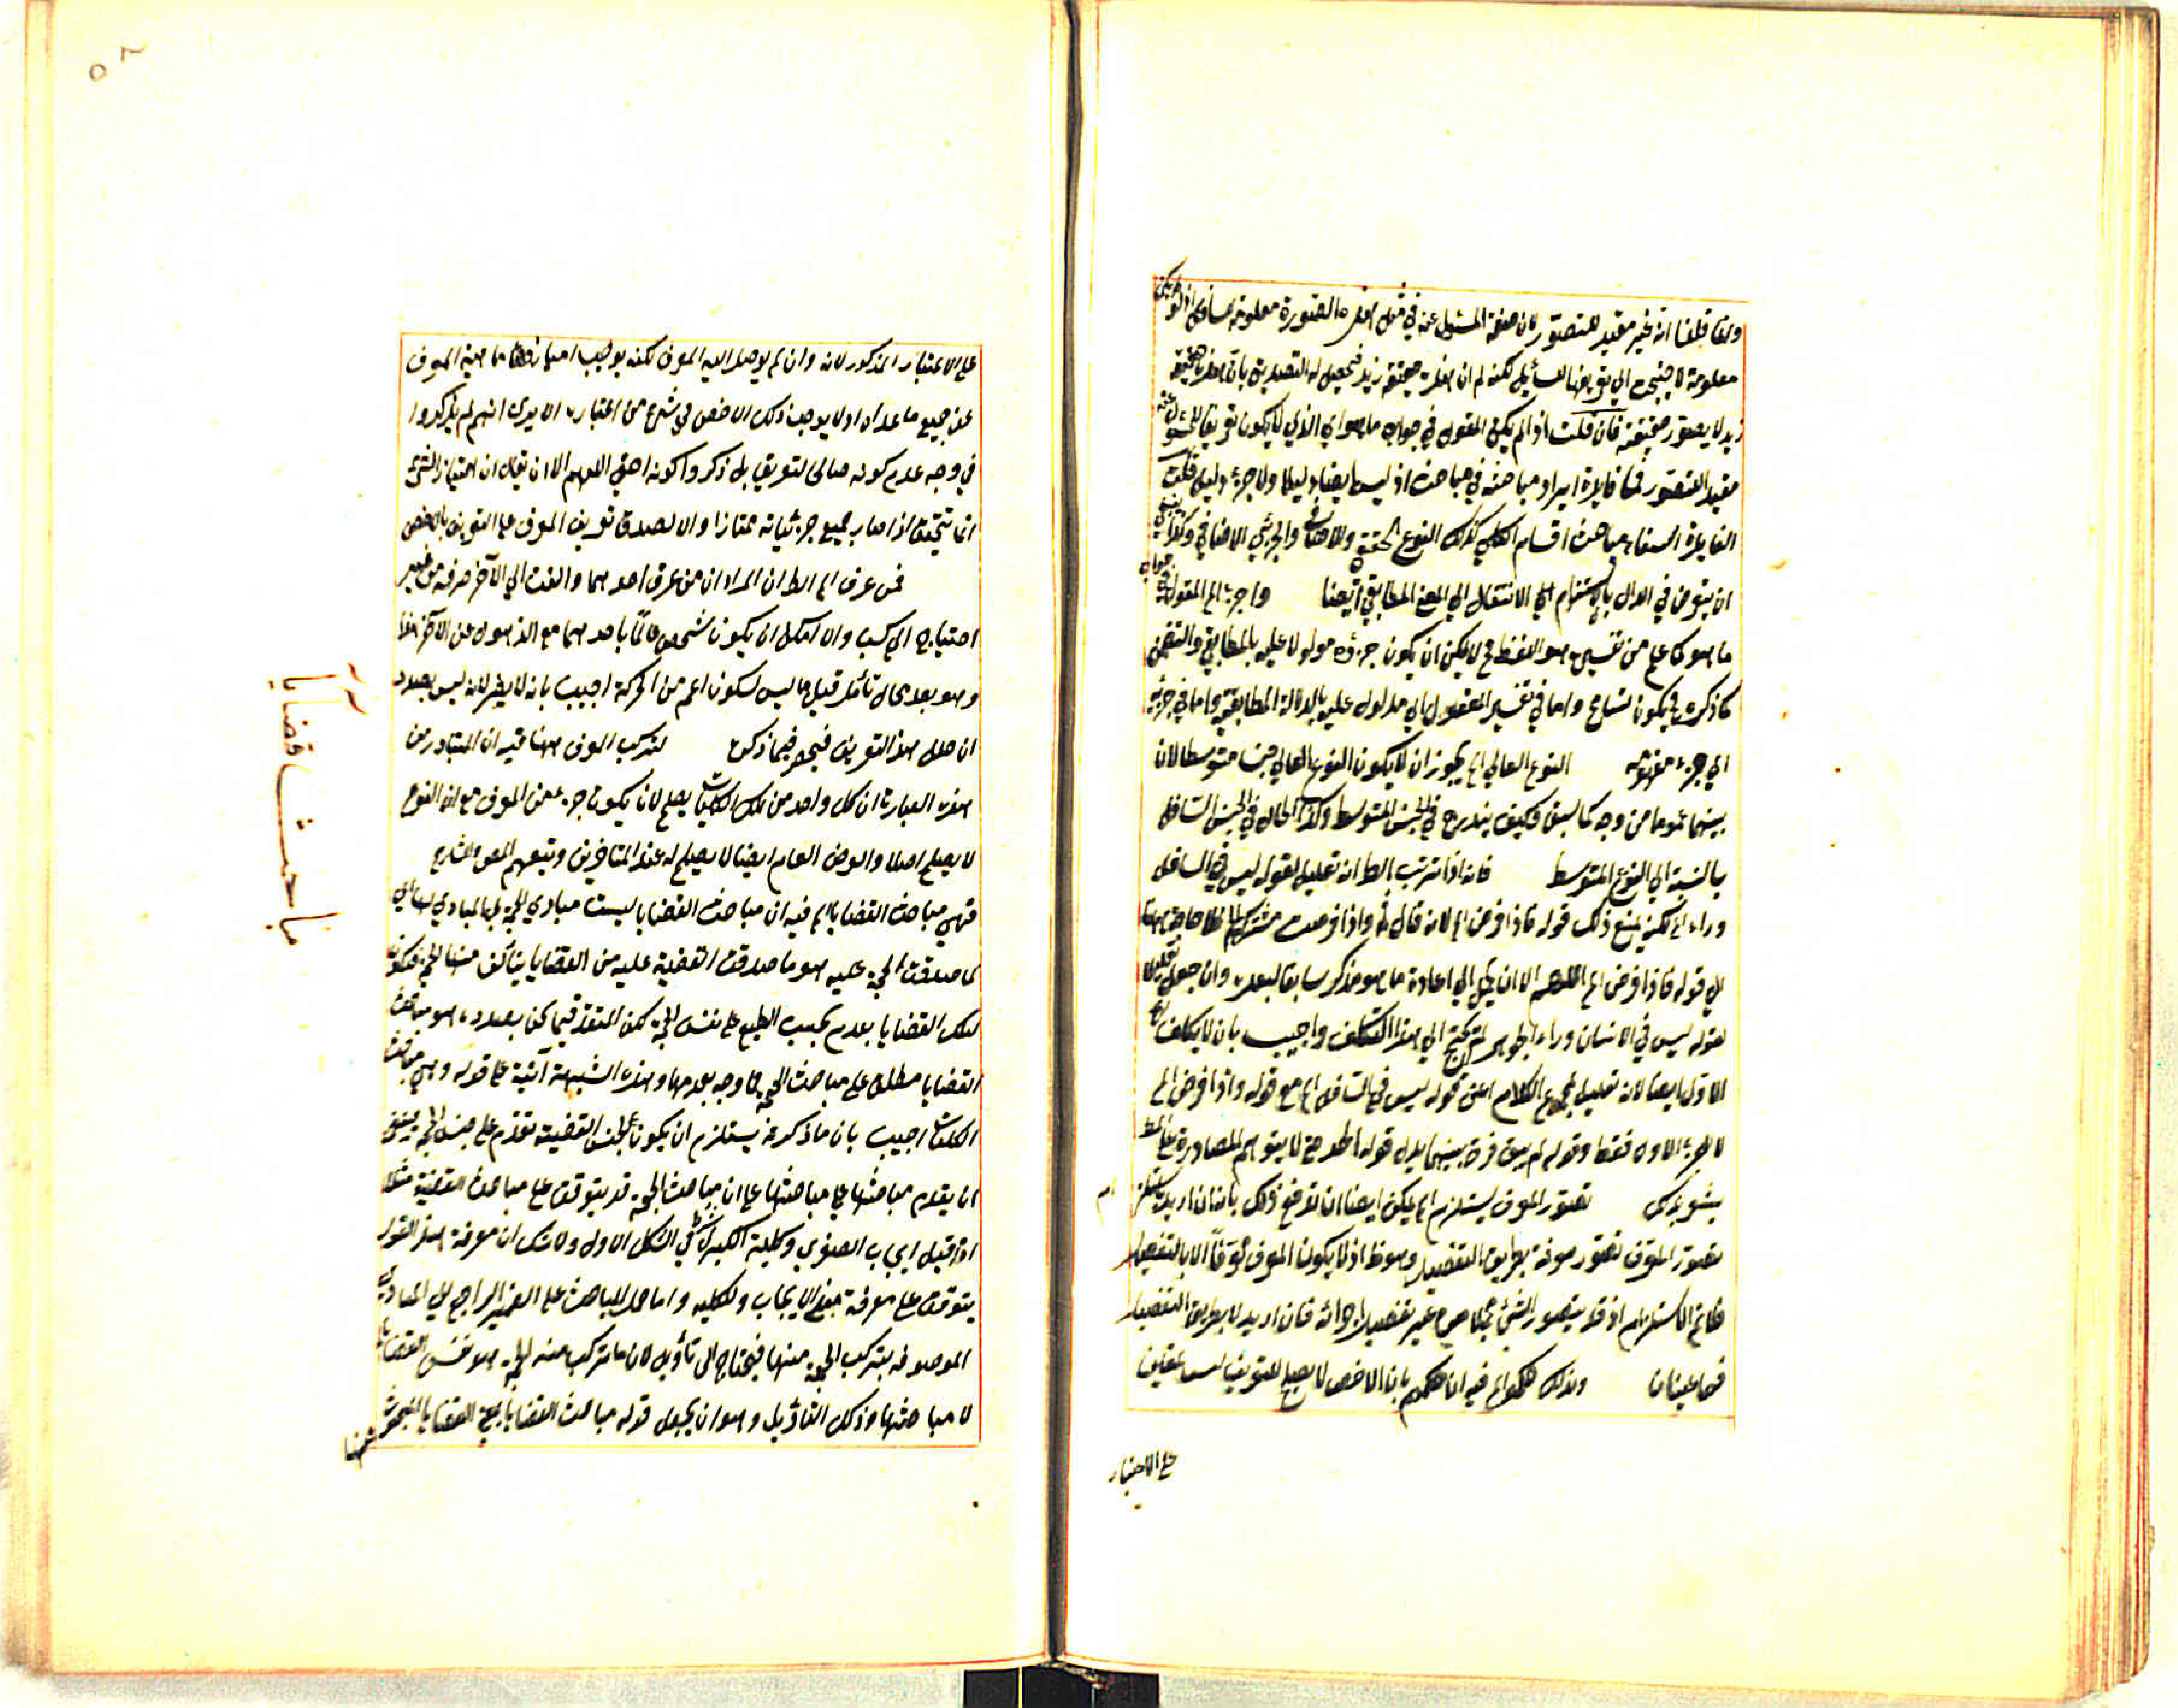 وانما قلنا انه غير مفيد للتصور لان صفة المسئول عنه في مثل هذه الصورة معلومة للسائل اذ لو لم يكن
معلومة لاحتيج الى تعريفها للسائل لكنه لم ان هذه حقيقة زيد فيحصل له التصديق بان هذه حقيقة
زيد لا بصور حقيقة فان قلت اذا لم يكن المقول في جواب ما هو اي الذي لا يكون تعريفا للمسئول عنه
مفيد التصور فما فايدة ايراد مباحثه في مباحث اذ ليس ايضا دليلا ولا جزء دليل قلت
الفايدة استيفاء مباحث اقسام الكلي كذلك النوع الحقيقي والاضافي والجزئي الاضافي وكذا ينبغي
ان يتعرض في الدال بالالتزام الى الانتقال الى المعنى المطابقي ايضا واجزاء المقول في جواب
ما هو كما علم من تقسيمه هو اللفظ فح لا يمكن ان يكون جزؤه مدلولا عليه بالمطابقي والتضمن
كما ذكره في يكون تسامح واما في تفسير المقول اي مدلول عليه بالدلالة المطابقية واما في جزئه
اي جزء مفهومه النوع العالي الخ يجوز ان لا يكون النوع العالي جنسا متوسطا لان
بينهما عموما من وجه كما سبق فكيف يندرج في الجنس المتوسط وكذا الحال في الجنس السافل
بالنسبة الى النوع المتوسط فانه اذا ترتب الخ انه تعليل لقوله ليس في السافل
وراء الخ لكنه يمنع ذلك قوله فاذا فرض الخ لانه قال ثم واذا فرضت فلا حاجة هنا
الى قوله فاذا فرض الخ اللهم الا ان يحمل الى اعادة ما هو مذكر سابقا لبعده وان جعل تعليلا
لقوله ليس في الانسان وراء الجوهر لم يحتج الى هذا التكلف واجيب بان لا يكلف في
الاول ايضا لانه تعليل لمجموع الكلام اعني قوله ليس في السافل الخ مع قوله واذا فرض الخ
لا للجزء الاول فقط وقوله لم يبق فرق بينهما يدل قوله حتى لا يتوهم المصادرة على المط
تصور المعرف يستلزم الخ يمكن ايضا ان تدفع ذلك بانه ان اريد يستلزم
تصور المعرف تصور معرفة بطريق التفصيل وهو ظ اذ لا يكون المعرف معرفا الا بالتفصيل
فلا نم الاستلزام اذ قد يتصور الشيء مجملا من غير تفصيل اجزائه فان اريد لا بطريق التفصيل
فهما عينان ولذلك حكموا الخ فيه ان حكمهم بان الاخص لا يصلح للتعريف ليس بمعين
على الاعتبار
على الاعتبار المذكور لانه وان لم يوصل اليه المعرف لكنه يوجب امتياز ماهية المعرف
عن جميع ما عداه اولا يوجب ذلك الاخص في شرع من اعتباره الا يرى انهم لم يذكروا
في وجه عدم كونه صالحا لتعريف بل ذكروا كونه اخفى اللهم الا ان يقال ان امتياز الشيء
انما يتحقق اذا صار بجميع جزئياته ممتازا والا لصدق تعريف المعرف على التعريف بالاخص
فمن عرف الخ الظ ان المراد ان من عرف احدهما والتفت الى الآخر عرفه من غير
احتياج الى كسب والا امكن ان يكون شخص عالما باحدهما مع الذهول عن الآخر
وهو بعد محل تأمل قيل ما ليس لسكون اعم من الحركة اجيب بانه لا يضر لانه ليس بصدد
ان حال هذا التعريف فيحصر فيما ذكره لتركب المعرف ههنا فيه ان المتبادر من
هذه العبارة ان كل واحد من تلك الكليات يصلح لان يكون جزءا من المعرف مع ان النوع
لا يصلح اصلا والعرض العام ايضا لا يصلح له عند المتاخرين وتبعهم المص والشارح
فهي مباحث القضايا الخ فيه ان مباحث القضايا ليست مبادي الحجة بل المبادي لها هي
ما صدقت الحجة عليه هو ما صدقت القضية عليه من القضايا يتالف منها الحجة فيكون
تلك القضايا بعدم بحسب الطبع على نفس الحجة لكن المتقدم فيما نحن بصدده هو مباحث
القضايا مطلقا على مباحث الحجة فلا وجه بعدمها وهذه الشبهة آتية على قوله وهي مباحث
الكليات اجيب بان ما ذكر عنه يستلزم ان يكون لجنس القضية تقدم على جنس الحجة فينبغي
ان يقدم مباحثها على مباحثها على ان مباحث الحجة قد يتوقف على مباحث القضية مثلا
اذا قيل ايجاب الصغرى وكلية الكبرى شرط في الشكل الاول ولا شك ان معرفة هذا القول
يتوقف على معرفة معنى الايجاب والكلية واما حمل المباحث على الضمير الراجع الى المبادي
الموصوفة بتركب الحجة منها فيحتاج الى تأويل لان ما تركب منه الحجة هو نفس القضايا
لا مباحثها وذلك التأويل وهو ان يجعل قوله مباحث القضايا بمعنى القضايا المبحوث عنها
مباحث قضايا